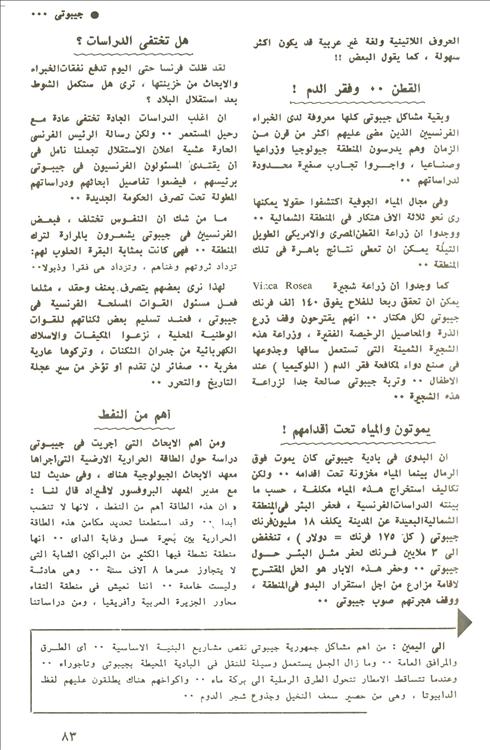 ● جيبوتى ٠٠٠
الحروف اللاتينية ولغة غير عربية قد يكون اكثر
سهولة ، كما يقول البعض !!
القطن ٠٠ وفقر الدم !
وبقية مشاكل جيبوتي كلها معروفة لدى الخبراء
الفرنسيين الذين مضى عليهم اكثر من قرن مـن
الزمان وهم يدرسون المنطقة جيولوجيا وزراعيا
وصناعيا ، واجـروا تجارب صغيرة محـدودة
لدراساتهم ٠٠
وفي مجال المياه الجوفية اكتشفوا حقولا يمكنها
رى نحو ثلاثة الاف هتكار في المنطقة الشمالية ٠٠
ووجدوا ان زراعة القطن المصرى والامريكى الطويل
التيلة يمكن ان تعطى نتائج باهرة في تلك
المنطقة ٠٠
كما وجدوا ان زراعة شجيرة Vinca Rosea
يمكن ان تحقق ربحا للفلاح يفوق ١٤٠ الف فرنك
جيبوتى لكل هكتار ٠٠ انهم يقترحون وقف زرع
الذرة والمحاصيل الرخيصة الفقيرة ، وزراعة هذه
الشجيرة الثمينة التى تستعمل ساقها وجذوعها
في صنع دواء لمكافحة فقر الدم ( اللوكيميا ) عند
الاطفال ٠٠ وتربة جيبوتى صالحة جدا لزراعـة
هذه الشجيرة ٠٠
يموتون والمياه تحت اقدامهم !
ان البدوى في بادية جيبوتى كان يموت فوق
الرمال بينما المياه مخزونة تحت اقدامه ٠٠ ولكن
تكاليف استخراج هـذه المياه مكلفـة ، حسب ما
بينته الدراسات الفرنسية ، فحفر البئر في المنطقة
الشمالية البعيدة عن المدينة يكلف ١٨ مليون فرنك
جيبوتى ( كل ١٧٥ فرنك = دولار ) ، تنخفض
الى ٣ ملايين فرنـك لحفر مثـل البئر حـول
جيبوتى ٠٠ وحفر هـذه الابار هو الحل المقتـرح
لاقامة مزارع من اجل استقرار البدو في المنطقة ،
ووقف هجرتهم صوب جيبوتى ٠٠
هل تختفى الدراسات ؟
لقد ظلت فرنسا حتى اليوم تدفع نفقات الخبراء
والابحاث من خزينتها ، ترى هل ستكمل الشوط
بعد استقلال البلاد ؟
ان اغلب الدراسات الجادة تختفى عادة مـع
رحيل المستعمر ٠٠ ولكن رسالة الرئيس الفرنسى
الحارة عشية اعلان الاستقلال تجعلنا نامل في
أن يقتدى المسئولون الفرنسيون في جيبـوتى
برئيسهم ، فيضعوا تفاصيل ابحاثهم ودراساتهم
المطولة تحت تصرف الحكومة الجديدة ٠٠
مـا من شك ان النفـوس تختلف ، فبعـض
الفرنسيين في جيبوتى يشعـرون بالمرارة لترك
المنطقة ٠٠ فهى كانت بمثابة البقرة الحلوب لهم:
تزداد ثروتهم وغناهم ، وتزداد هى فقرا وذبولا٠٠
لهذا نرى بعضهم يتصرف بعنف وحقد ، مثلما
فعـل مسئول القوات المسلحة الفرنسية في
جيبوتى ، فعنـد تسليم بعض ثكناتهم للقـوات
الوطنيـة المحلية ، نزعـوا المكيفـات والاسلاك
الكهربائية من جدران الثكنات ، وتركوها عارية
مخربة ٠٠ صغائر لن تقدم او تؤخر من سير عجلة
التاريخ والتحرر ٠٠
أهم من النفط
ومن اهم الابحاث التى اجريت في جيبـوتى
دراسة حول الطاقة الحرارية الارضية التى اجراها
معهد الابحاث الجيولوجية هناك ، وفى حديث لنا
مع مدير المعهد البروفسور لاقيراد قال لنـا :
« ان هذه الطاقة أهم من النفط ، لانها لا تنضب
أبدا ٠٠ وقد استطعنا تحديد مكامن هذه الطاقة
الحرارية بين بحيرة عسل وغابة الداى ٠٠ انها
منطقة نشطة فيها الكثير من البراكين الشابة التى
لا يتجاوز عمرها ٨ آلاف سنة ٠٠ وهى هادئـة
وليست خامدة ٠٠ اننا نعيش في منطقة التقاء
محاور الجزيرة العربية وأفريقيا ، ومن دراساتنا
الى اليمين : من اهم مشاكل جمهورية جيبوتى نقص مشاريع البنية الاساسية ٠٠ أى الطـرق
والمرافق العامة ٠٠ وما زال الجمل يستعمل وسيلة للنقل في البادية المحيطة بجيبوتى وتاجوراء ٠٠
وعندما تتساقط الامطار تتحول الطرق الرملية الى بركة ماء ٠٠ واكواخهم هناك يطلقون عليهم لفظ
الدابيوتا ، وهى من حصير سعف النخيل وجذوع شجر الدوم ٠٠
٨٣